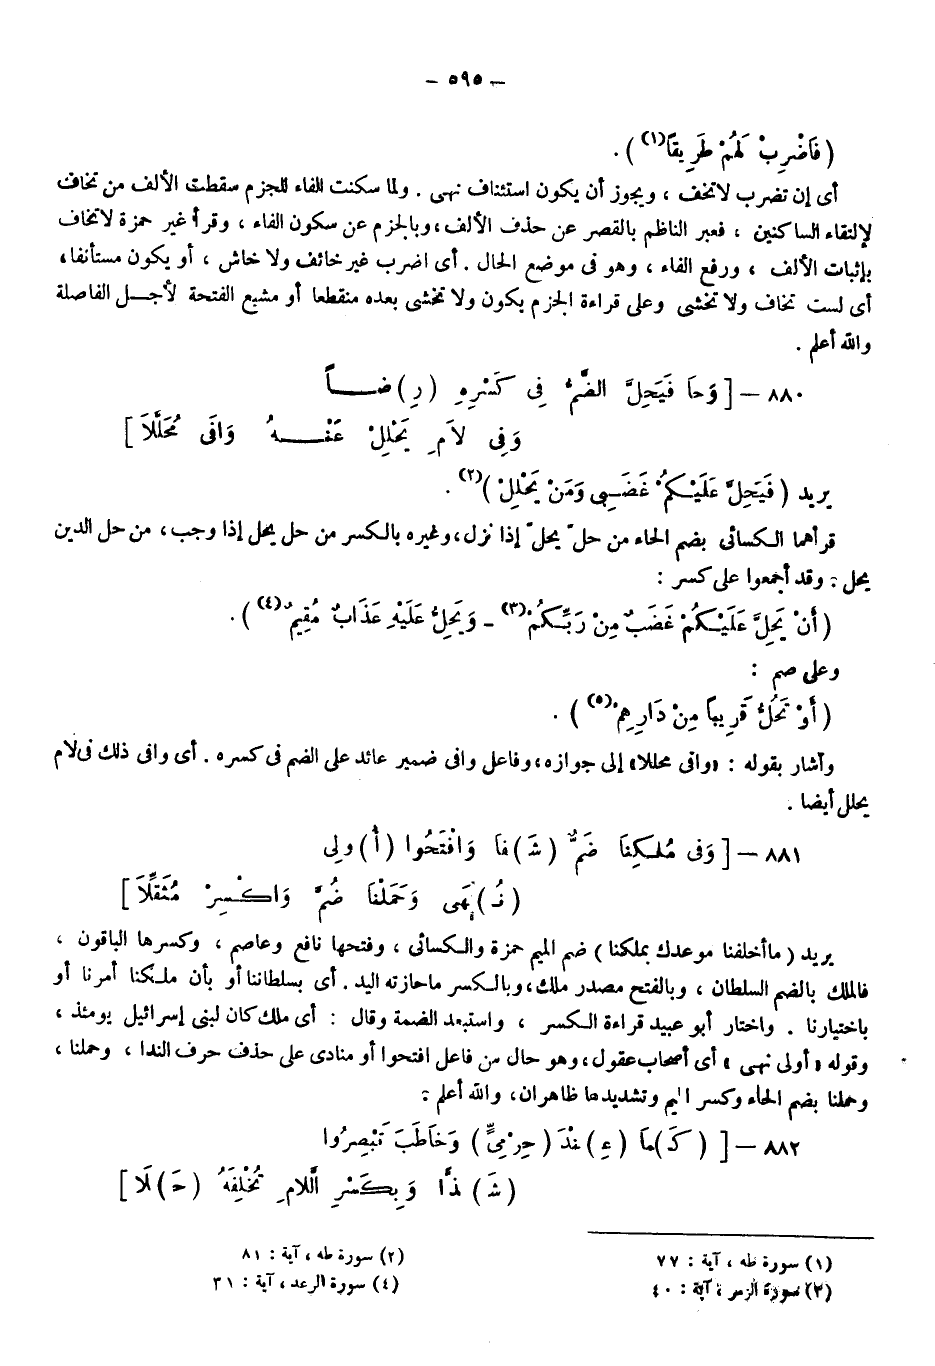 – ٥٩٥ –
( فَاضْرِبْ لَهُمْ طَرِيقًا(١) ) .
أى إن تضرب لاتخف ، ويجوز أن يكون استئناف نهى . ولما سكنت الفاء للجزم سقطت الألف من تخاف
لإلتقاء الساكنين ، فعبر الناظم بالقصر عن حذف الألف ، وبالجزم عن سكون الفاء ، وقرأ غير حمزة لاتخاف
بإثبات الألف ، ورفع الفاء ، وهو فى موضع الحال . أى اضرب غير خائف ولا خاش ، أو يكون مستأنفا ،
أى لست تخاف ولا تخشى وعلى قراءة الجزم يكون ولا تخشى بعده منقطعا أو مشبع الفتحة لأجل الفاصلة
والله أعلم .
٨٨٠ – [ وَحَا فَيَحِلَّ الضَّمُّ فِى كَسْرِهِ ( رِ ) ضاً
وَفِى لاَمِ يَحْلِلْ عَنْهُ وَافَى مُحَلَّلاَ ]
يريد ( فَيَحِلَّ عَلَيْكُمْ غَضَبِى وَمَنْ يَحْلِلْ )(٢) .
قرأهما الكسائى بضم الحاء من حلّ يحلّ إذا نزل ، وغيره بالكسر من حل يحل إذا وجب ، من حل الدين
يحل . وقد أجمعوا على كسر :
( أَنْ يَحِلَّ عَلَيْكُمْ غَضَبٌ مِنْ رَبِّكُمْ(٣) – وَيَحِلُّ عَلَيْهِ عَذَابٌ مُقِيمٌ(٤) ) .
وعلى ضم :
( أَوْ تَحُلُّ قَرِيبًا مِنْ دَارِهِمْ(٥) ) .
وأشار بقوله : «وافى محللا» إلى جوازه ، وفاعل وافى ضمير عائد على الضم فى كسره . أى وافى ذلك فى لام
يحلل أيضا .
٨٨١ – [ وَفِى مُلْكِنَا ضَمٌّ ( شَـ ) فَا وَافْتَحُوا ( أُ ) ولِى
( نُـ ) هَى وَحَمَلْنَا ضُمَّ وَاكْسِرْ مُثَقِّلاَ ]
يريد ( ماأخلفنا موعدك بملكنا ) ضم الميم حمزة والكسائى ، وفتحها نافع وعاصم ، وكسرها الباقون ،
فالملك بالضم السلطان ، وبالفتح مصدر ملك ، وبالكسر ماحازته اليد . أى بسلطاننا أو بأن ملكنا أمرنا أو
باختيارنا . واختار أبو عبيد قراءة الكسر ، واستبعد الضمة وقال : أى ملك كان لبنى إسرائيل يومئذ ،
وقوله «أولى نهى» أى أصحاب عقول ، وهو حال من فاعل افتحوا أو منادى على حذف حرف الندا ، وحملنا ،
وحملنا بضم الحاء وكسر الميم وتشديدها ظاهران ، والله أعلم .
٨٨٢ – [ ( كَـ ) مَا ( عِـ ) نْدَ ( حِرْمِىٍّ ) وَخَاطَبَ تَبْصِرُوا
( شَـ ) ذًا وَبِكَسْرِ اللَّامِ تُخْلِفَهُ ( حَـ ) لَا ]
(١) سورة طه ، آية : ٧٧
(٢) سورة طه ، آية : ٨١
(٣) سورة الزمر ، آية : ٤٠
(٤) سورة الرعد ، آية : ٣١